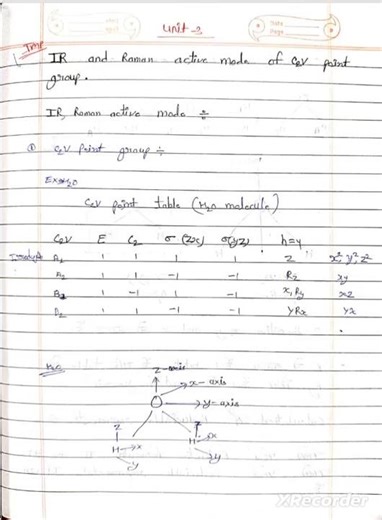 Unit-2
Date
Page
Imp
IR and Raman active mode of C2V point
group.
IR, Raman active mode ÷
① C2V Point group ÷
Ex:- H2O
C2V point table (H2O molecule)
C2V E C2 σ (zx) σ(yz) h=4
A1 1 1 1 1 Z x², y² z²
A2 1 1 -1 -1 Rz xy
B1 1 -1 1 -1 x, Ry xz
B2 1 1 -1 -1 Y Rx Yz
H2O
Z-axis
x-axis
O
y-axis
Z Z
H x H x
y y
XRecorder